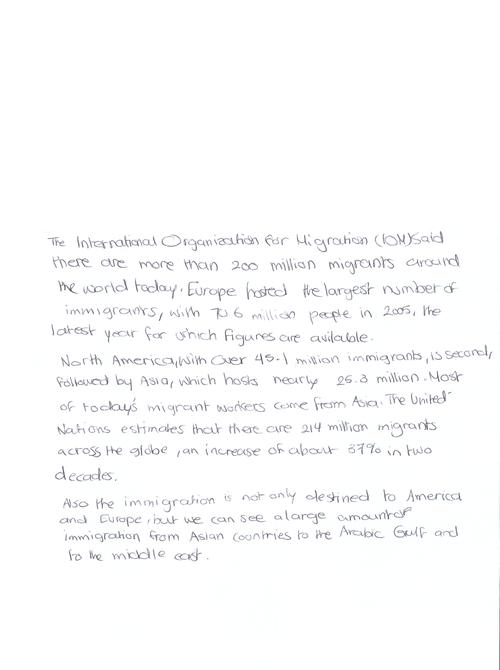 The International Organization for Migration (IOM) said
there are more than 200 million migrants around
the world today. Europe hosted the largest number of
immigrants, with 70 6 million people in 2005, the
latest year for which figures are avilable.
North America, with over 45.1 million immigrants, is second,
followed by Asia, which hosts nearly 25.3 million. Most
of today's migrant workers come from Asia. The United
Nations estimates that there are 214 million migrants
across the globe, an increase of about 37% in two
decades.
Also the immigration is not only destined to America
and Europe, but we can see a large amount of
immigration from Asian countries to the Arabic Gulf and
to the middle east.